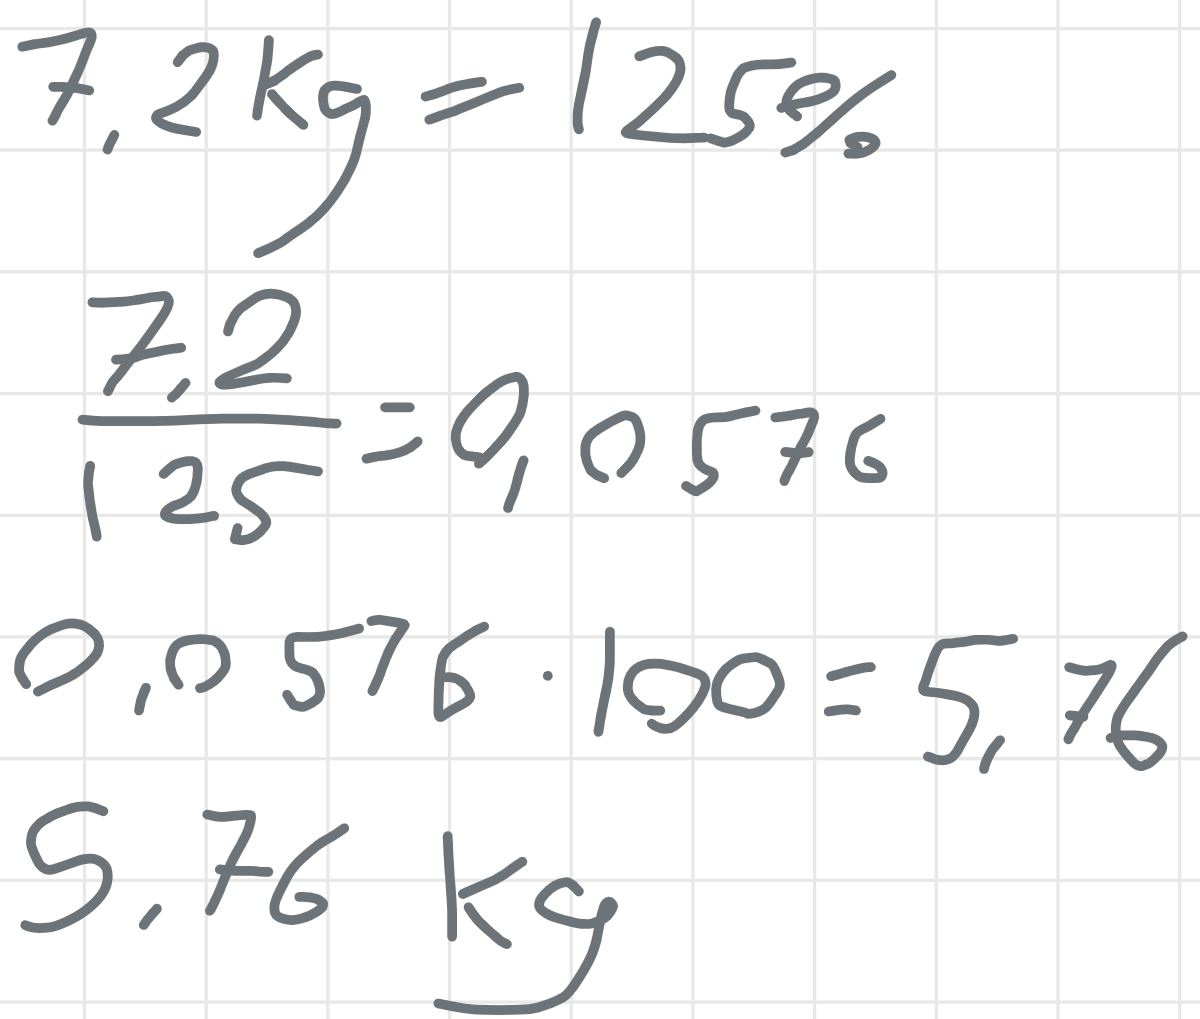 7,2 kg = 125%
7,2/125 = 0,0576
0,0576 · 100 = 5,76
5,76 kg